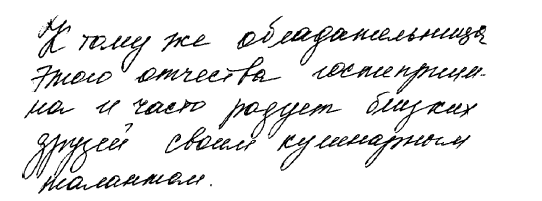 К тому же обладательница
этого отчества гостеприим-
на и часто радует близких
друзей своим кулинарным
талантом.